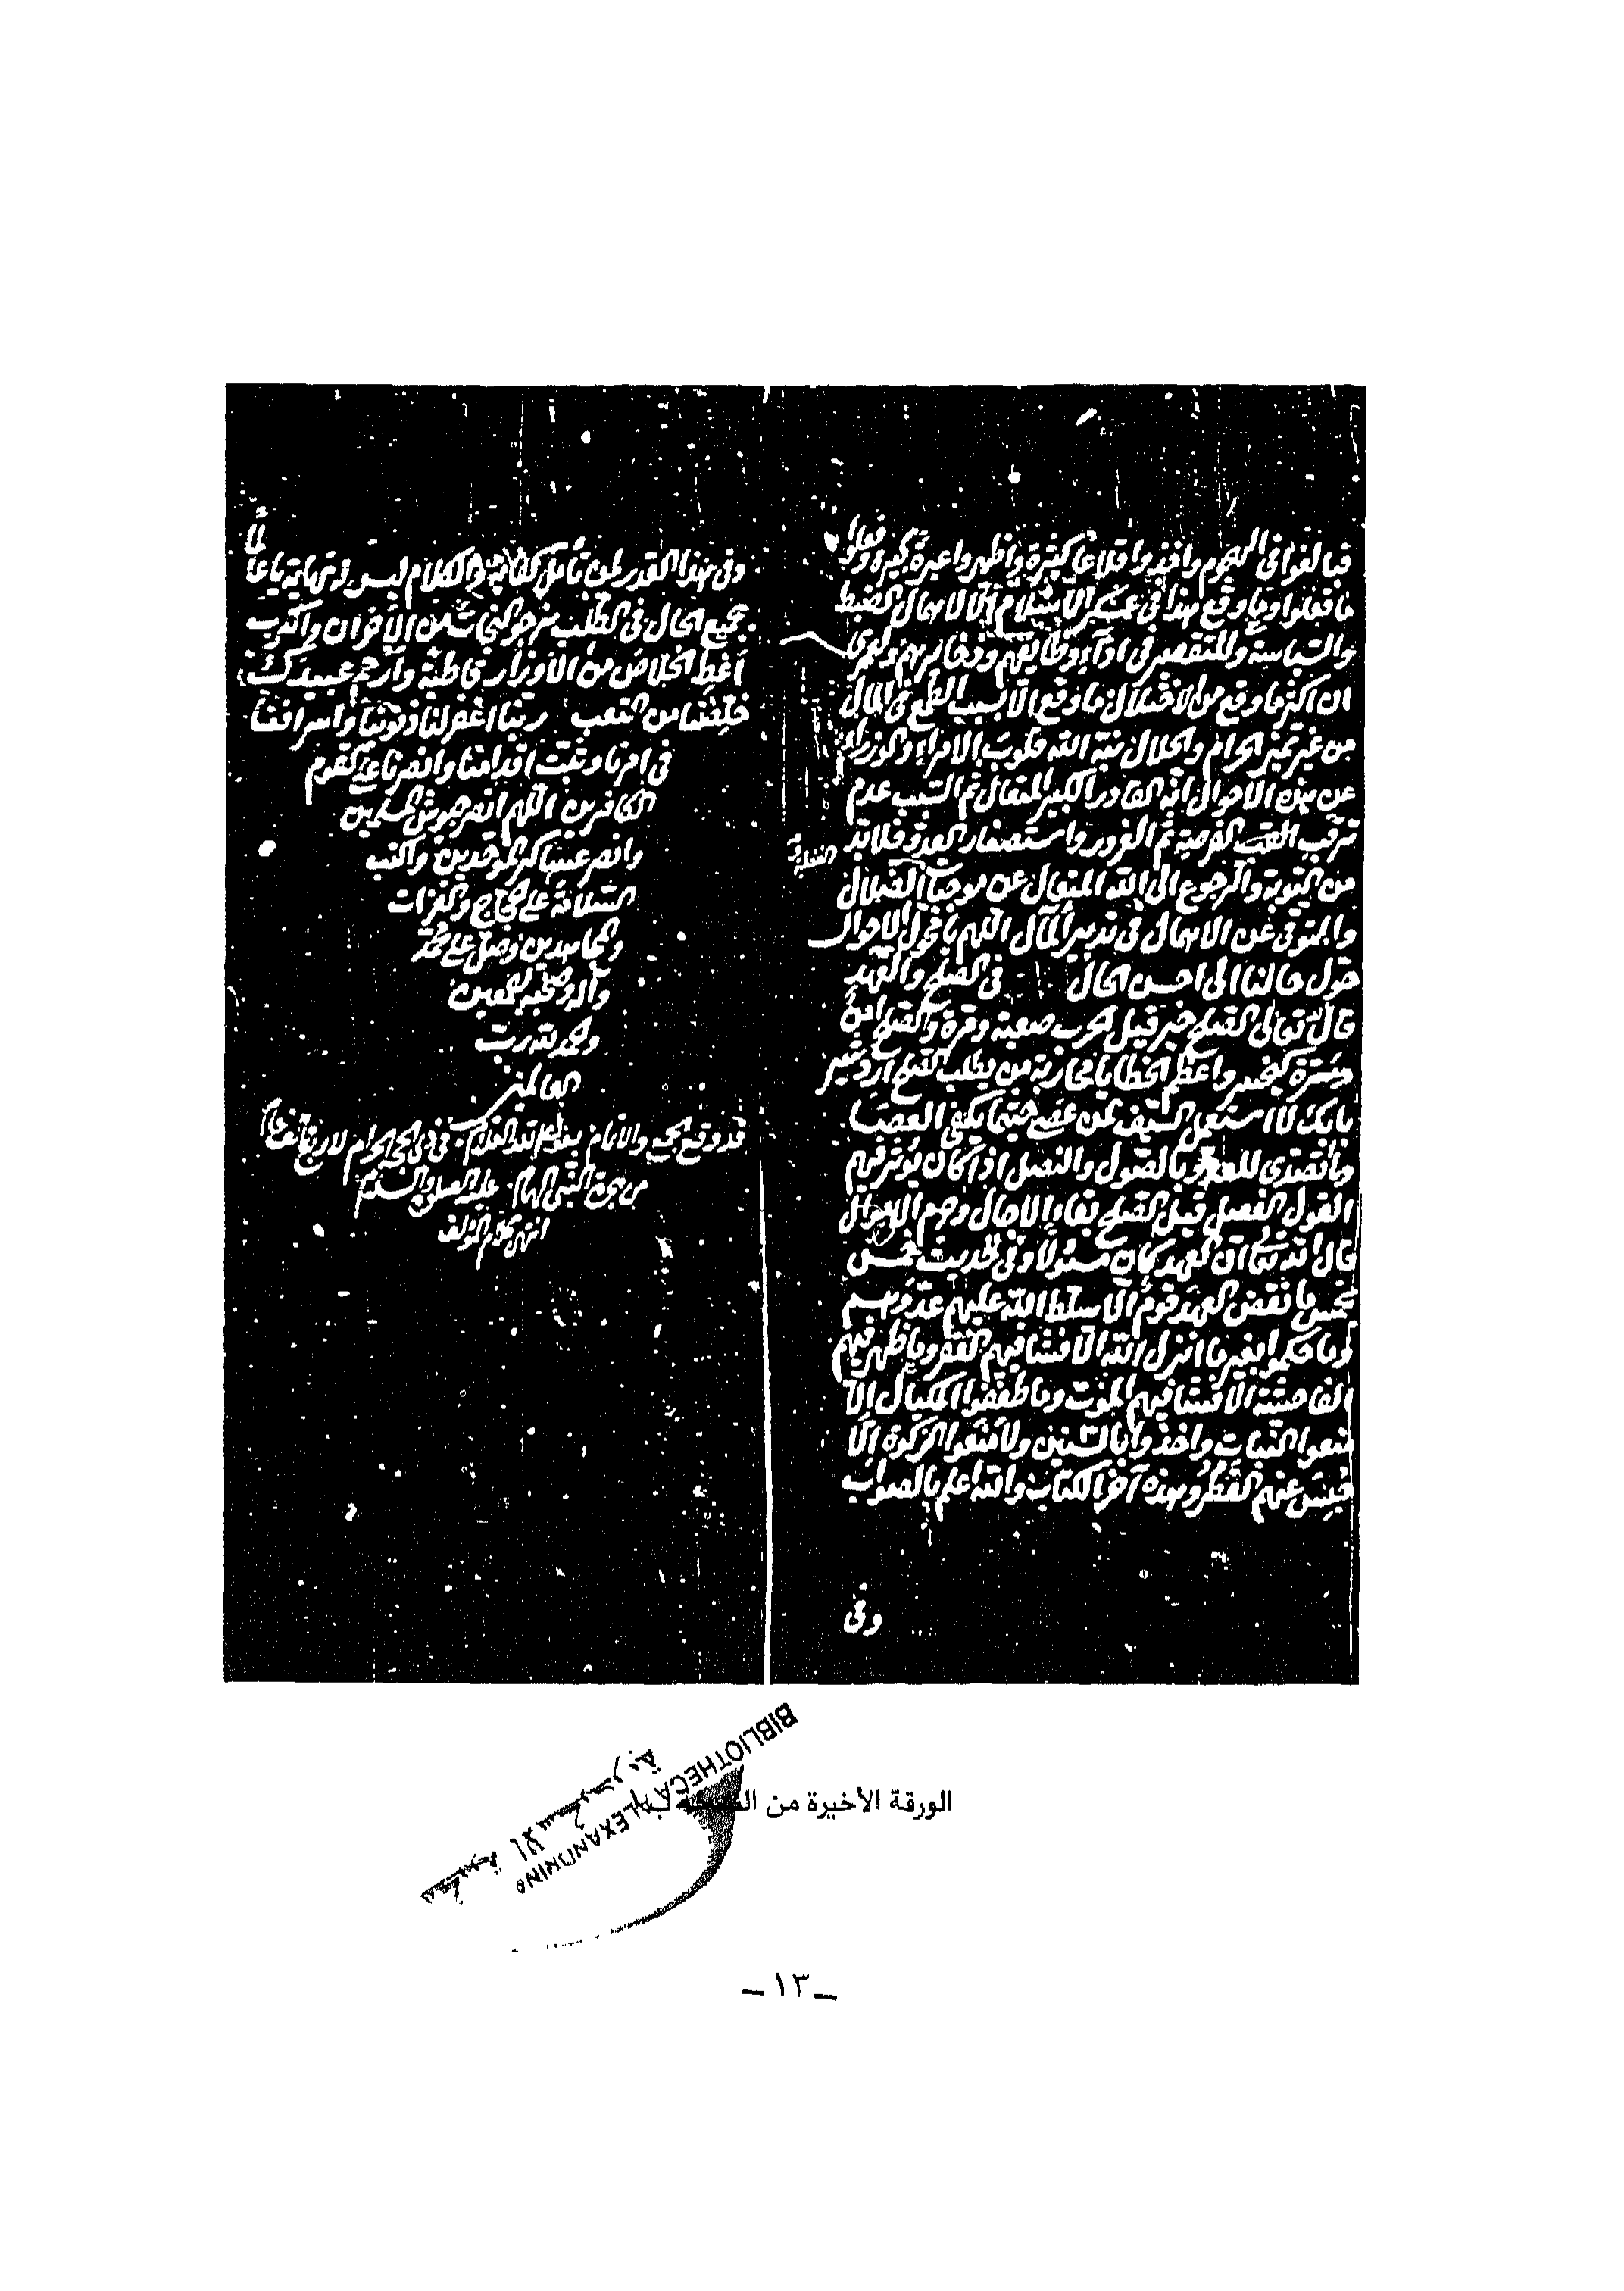 فبالغوا فى الهجوم وافذوا قلاعا كثيرة واظهروا عبرة كبيرة وفعلوا
ما فعلوا وما وقع هذا فى عسكر الاسلام الا لاهمال الضبط
والسياسة وللتقصير فى اداء وظايفهم وذخائرهم ولعمرى
ان اكثر ما وقع من الاختلال ما وقع الا بسبب الطمع فى المال
من غير تميز الحرام والحلال نبه الله قلوب الامراء والوزراء
عن هذه الاحوال انه القادر الكبير المتعال ثم السبب عدم
ترقب الفرصة ثم الغرور واستصغار العدو فلابد
من التوبة والرجوع الى الله المتعال عن موجبات الضلال
والتوقى عن الاهمال فى تدبير المآل اللهم يا محول الاحوال
حول حالنا الى احسن الحال فى الصلح والعهد
قال تعالى الصلح خير قيل الحرب صعبة ومرة والصلح امن
ومسرة واعظم الخطايا محاربة من يطلب الصلح اردشير
بابك لا استعمل السيف حيثما يكفى العصا
وما تصدى للعدو بالصول والنصل اذا كان يوثر فيهم
القول الفصل قيل الصلح بقاء الآجال وحرم الاموال
قال الله تعالى ان العهد كان مسئولا وفى الحديث خمس
بخمس ما نقض العهد قوم الا سلط الله عليهم عدوهم
وما حكموا بغير ما انزل الله الا فشا فيهم الفقر وما ظهر فيهم
الفاحشة الا فشا فيهم الموت وما طففوا المكيال الا
منعوا النبات واخذوا بالسنين ولا منعوا الزكوة الا
حبس عنهم القطر وهذه آخر الكتاب والله اعلم بالصواب
وفى
وفى هذا القدر لمن تأمل كفاية والكلام ليس له نهاية يا عالما
بجميع الحال فى الطلب نرجو النجات من الاحزان والكرب
اعط الخلاص من الاوزار قاطبة وارحم عبيدك
خلصنا من التعب ربنا اغفر لنا ذنوبنا واسرافنا
فى امرنا وثبت اقدامنا وانصرنا على القوم
الكافرين اللهم انصر جيوش المسلمين
وانصر عساكر الموحدين واكتب
السلامة على الحجاج والغزات
والمجاهدين وصل على محمد
وآله وصحبه اجمعين
والحمد لله رب
العالمين
قد وقع الجمع والاتمام بعون الله العلام فى ذى الحجة الحرام
من هجرة النبى الهمام عليه الصلوة والسلام
انتهى كلام المؤلف
الورقة الأخيرة من
BIBLIOTHECA ALEXANDRINA
مكتبة الاسكندرية
ـ ١٣ ـ